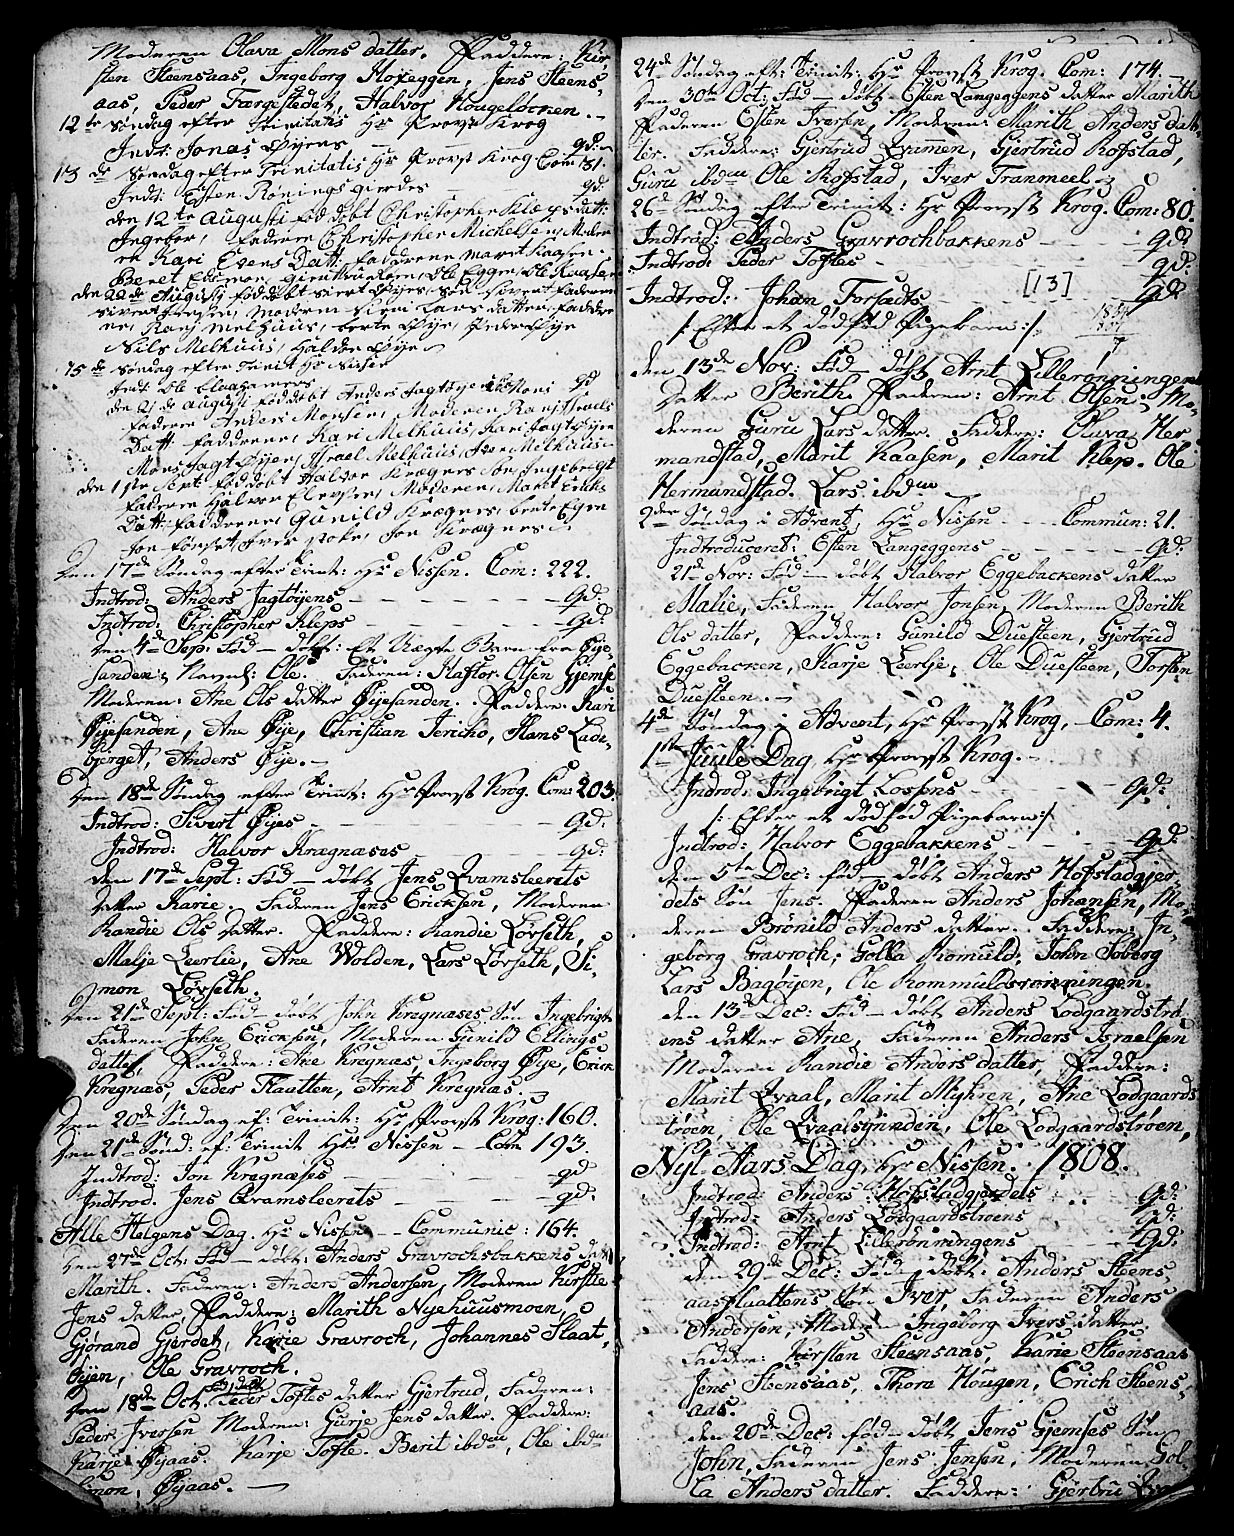 Moderen Olava Mons datter. Faddere: Kir
sten Steensaas, Ingeborg Høyeggen, Jens Steens,
aas, Peder Færgestedet, Halvor Kougeldonen.
12te Søndag efter Trinitatis Hr Provst Krog
Indt: Jonas Øyens qd.
13de Søndag efter Trinitatis Hr Provst Krog Com: 81.
Indt: Esten Rønings gierdes qd.
den 12te Augusti fød døbt Christopher Kleps datt:
Ingebor, faderen Christopher Michelsen, Mode
re Kari Evens Datt: fadderne Maret Kaasen
Beret
den 22de Augusti fød døbt Sivert Øyes Søn Sivert faderen
Sivert Moderen Siem Lars datter, faddere
ne, Ranj Melhuus, berte Øye, Peder Øye
Nils Melhuus, Haldor Øye
15de Søndag efter Trinit Hr Nisse
Indt: Ole qd
de 21de Augusti fød døbt Anders Jagtøyes
faderen Anders Monsen, Moderen Ranj Israels
Datt. fadderene, Kari Melhuus, Kari Jagtøyen
Mons Jagt Øyen, Israel Melhuus, Iver Melhuus
den 1ste Sept: fød døbt Haldor Krægnes Søn Ingebrigt
faderen Halvor Elevsen, Moderen Maret Erichs
Datt: fadderene, Gunild Krægnes, berte Egen
Jon Krægnes
Den 17de Søndag efter Trinit: Hr Nissen. Com: 222.
Indtrod: Anders Jagtøyens qd:
Indtrod: Christopher Kleps qd:
Den 4de Sep: Fød døbt: Et Uægte Barn fra Øye,
sanden, Navnl: Ole. Faderen: Haftor Olsen Gjemse
Moderen: Ane Ols datter Øyesanden. Faddere: Kari
Øyesanden, Ane Øye, Christian Jericho, Hans Lade,
bjerget, Anders Øye.
Den 18de Søndag efter Trinit: Hr Provst Krog. Com: 203.
Indtrod: Sivert Øyes qd:
Indtrod: Halvor Krægnæses qd:
Den 17de Sept: Fød døbt Jens Qvamsleerets
datter Karie. Faderen Jens Ericksen, Moderen
Randie Ols datter. Faddere: Randie Lørseth,
Malje Leerlie, Ane Wolden, Lars Lørseth, Si,
mon Lørseth.
Den 21de Sept: Fød døbt John Kregnæses Søn Ingebrigt
Faderen John Ericksen, Moderen Gunild Ellings
datter, Faddere: Ane Kregnæs, Ingeborg Øye, Erick
Kregnæs, Peder Flautten, Arnt Kregnæs.
Den 20de Søndag ef: Trinit: Hr Provst Krog: 160.
Den 21de Sønd: ef: Trinit Hr Nissen Com 193.
Indtrod: Jon Kregnæses qd
Indtrod. Jens Qvamsleerets qd:
Alle Helgens Dag. Hr Nissen Communic: 164.
Den 27de Oct: Fød døbt: Anders Gravrochsbakkens datt
Marith. Faderen: Anders Andersen, Moderen Kirstie
Jens datter Faddere: Marith Nyehuusmoen,
Gjørand Gjerdet, Karie Gravroch, Johannes Slaat,
øyen, Ole Gravroch.
Den 18de Oct. Fød døbt Peder Toftes datter Gjertrud, Faderen:
Peder Iversen Moderen: Gurje Jens datter. Faddere:
Karje Øyaas. Karje Tofte. Berit ibdm, Ole ibdm
Simon, Øyaas.
24de Søndag eft: Trinit: Hr Provst Krog. Com: 174.
Den 30te Oct: Fød døbt Esten Langeggens datter Marith
Faderen Esten Iversen, Moderen: Marith Anders dat
ter. Faddere: Gjertrud Qvamen, Gjertrud Rofstad,
Guru ibdm Ole Rofstad, Iver Tranmeel.
26de Søndag efter Trinit: Hr Provst Krog. Com: 80.
Indtrod: Anders Gravrochbakkens qd
Indtrod: Peder Toftes qd:
Indtrod: Johan Forsædts [13] qd
/: Efter et Dødfød Pigebarn:/
7
den 13de Nov: Fød døbt Arnt Lillerønningens
datter Berith. Faderen: Arnt Olsen. Mo,
deren Guru Lars datter. Faddere: Oluva Her
mandstad, Marit Kaasen, Marit Klep. Ole
Hermandstad. Lars ibdm
2den Søndag i Advent, Hr Nissen Commun: 21.
Indtroduceret: Esten Langeggens qd:
21de Nov: Fød døbt Halvor Eggebackens datter
Malie, Faderen Halvor Jonsen Moderen Berith
Ols datter, Faddere: Gunild Duesteen, Gjertrud
Eggebacken, Karje Leerlje, Ole Duesteen, Torsten
Duesteen.
4de Søndag i Advent, Hr Provst Krog, Com: 4.
1ste Juule Dag Hr Provst Krog.
Indrod: Ingebrigt Lossens qd:
/: Efter et dødfød Pigebarn:/
Indtrod: Halvor Eggebakkens qd:
den 5te Dec: fød døbt Anders Hofstadgjer,
dets Søn Jens. Faderen Anders Johansen, Mo,
deren Brønild Anders datter. Faddere: In,
geborg Gravroch, Golla Romuld, John Søberg
Lars Bagøyen, Ole Rommuldsrønningen.
den 13de Dec: Fød døbt Anders Lodgaardstrø
ens datter Ane, Faderen Anders Israelsen
Moderen Randie Anders datter, Faddere:
Marit Qvaal, Marit Myhren, Ane Lodgaards
trøen, Ole Qvaalsgrinden, Ole Lodgaardstrøen,
Nyt Aars Dag, Hr Nissen. 1808.
Indtrod: Anders Hofstadgjerdets qd:
Indtrod: Anders Lodgaardstrøens qd:
Indtrod: Arnt Lillerønningens qd:
den 29de Dec: Fød døbt: Anders Steens,
aasplaattens Søn Iver, Faderen Anders
Andersen, Moderen Ingeborg Ivers datter.
Faddere: Kirsten Steensaas, Karie Steensaas
Jens Steensaas, Thora Hougen, Erich Steens,
aas.
den 20de Dec: fød døbt Jens Gjemses Søn
John, Faderen Jens Jensen, Moderen Gol,
la Anders datter. Faddere: Gjertru